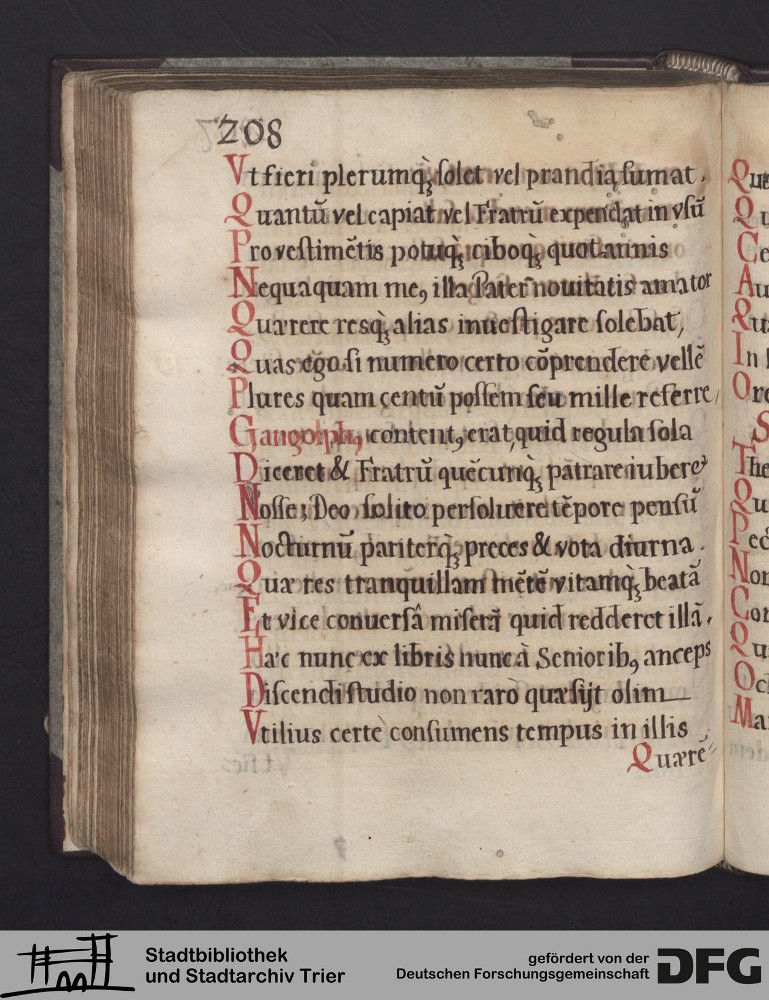 208
Vt fieri plerumq̀ꝫ solet vel prandia sumat.
Quantū vel capiat vel Fratrū expendat in vsū
Pro vestimētis potuq̀ꝫ ciboq̀ꝫ quotannis
Nequaquam meꝰ illa Pater nouitatis amator
Quærere resq̀ꝫ alias inuestigare solebat,
Quas ego si numero certo cōprendere vellē
Plures quam centū possem seu mille referre,
Gangolphꝰ contentꝰ erat, quid regula sola
Diceret & Fratrū quēcunq̀ꝫ patrare iuberet
Nosse; Deo solito persoluere tēpore pensū
Nocturnū pariterq̀ꝫ preces & vota diurna.
Quæ res tranquillam mētē vitamq̀ꝫ beatā
Et vice conuersâ miserā quid redderet illā.
Hæc nunc ex libris nunc à Senioribꝰ anceps
Discendi studio non rarò quæsijt olim
Vtilius certè consumens tempus in illis
Quærē
Que
Qu
Ce
Au
Qu
In
Ore
S
The
Qu
Pec
Non
Con
Qu
Oc
Ma
Stadtbibliothek
und Stadtarchiv Trier
gefördert von der
Deutschen Forschungsgemeinschaft
DFG